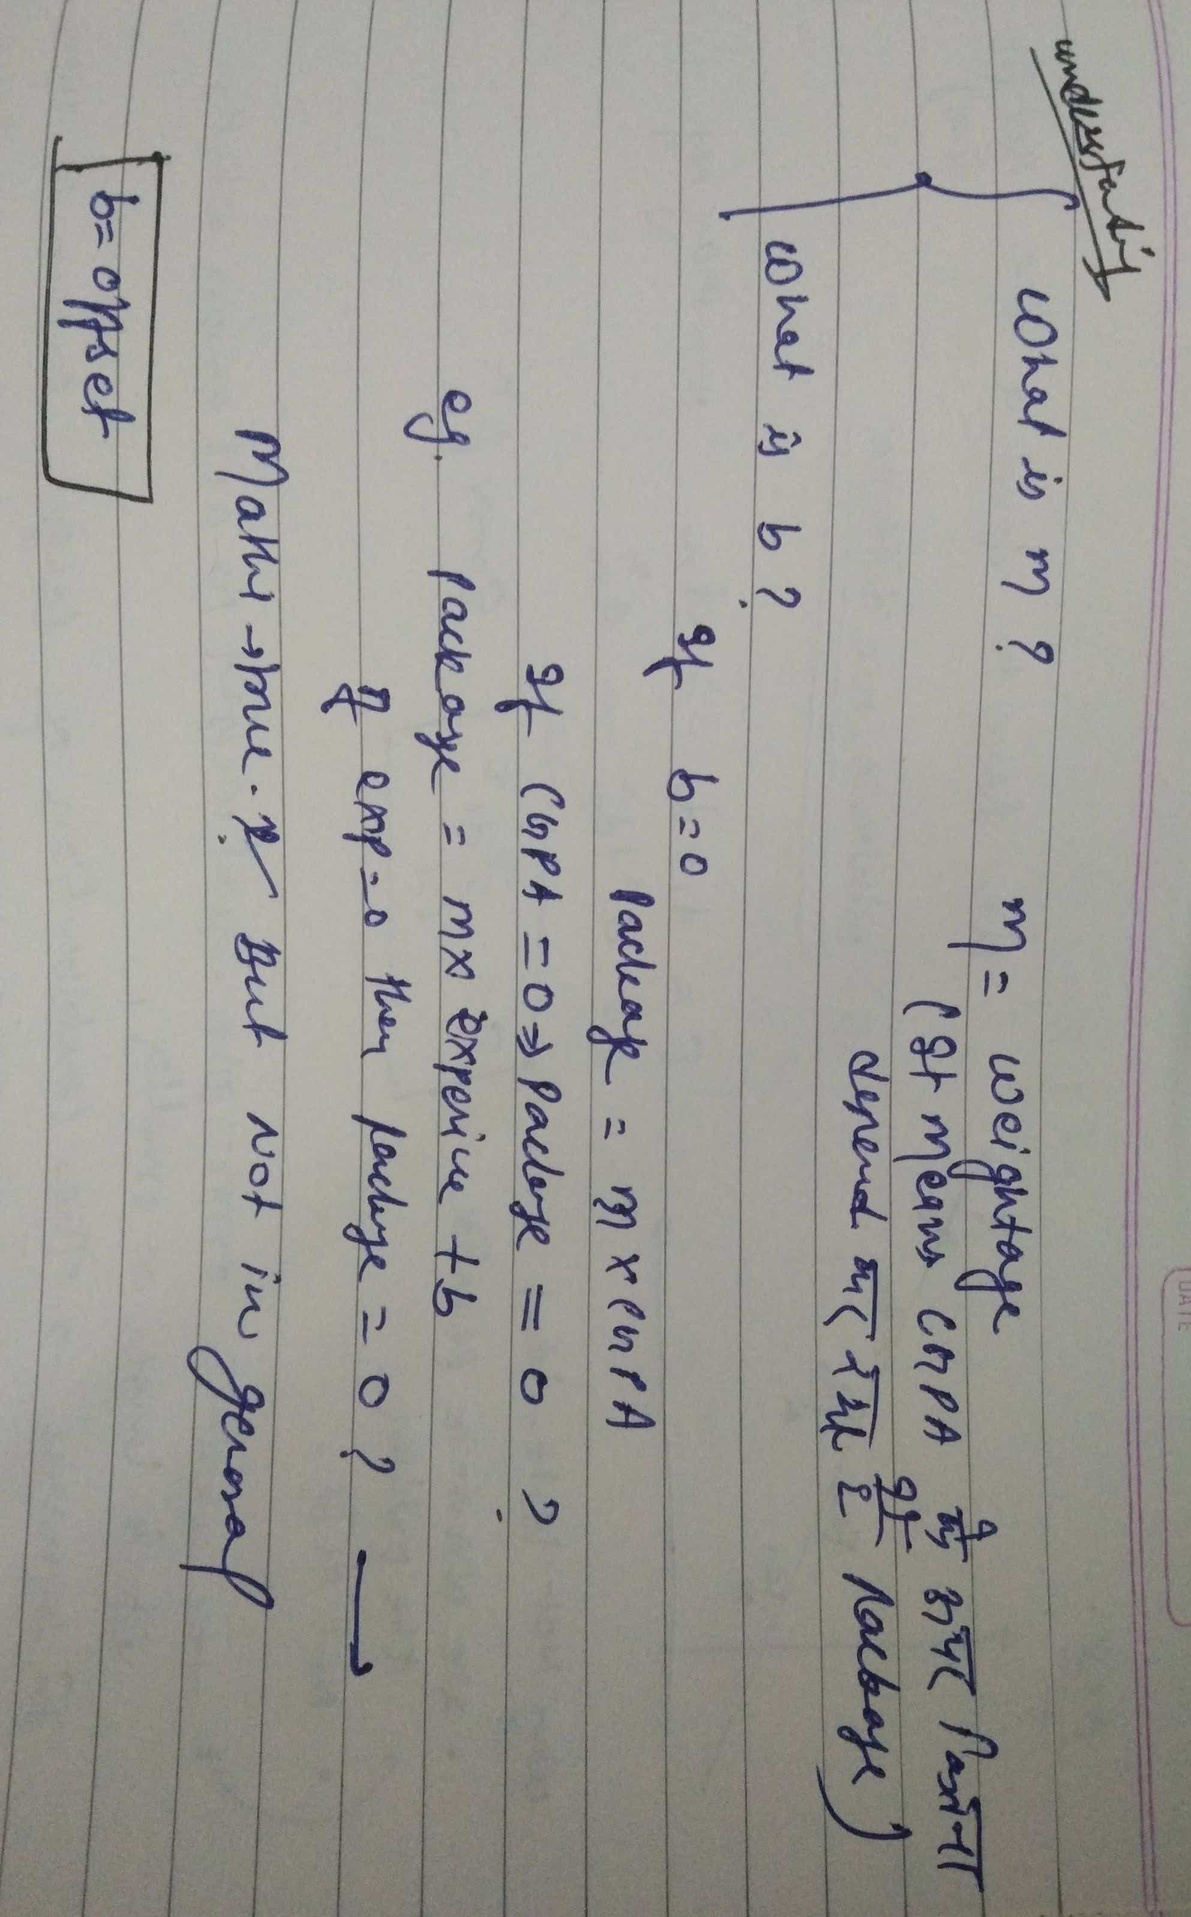 understanding
What is m ? m = weightage
(It means CGPA के ऊपर कितना
depend कर रहा है Package)
What is b ?
If b=0
Package = m x CGPA
If CGPA = 0 => Package = 0 ?
eg. Package = mx experince + b
If exp=0 then package = 0 ?
Maths → true. But Not in general
b= offset
DATE